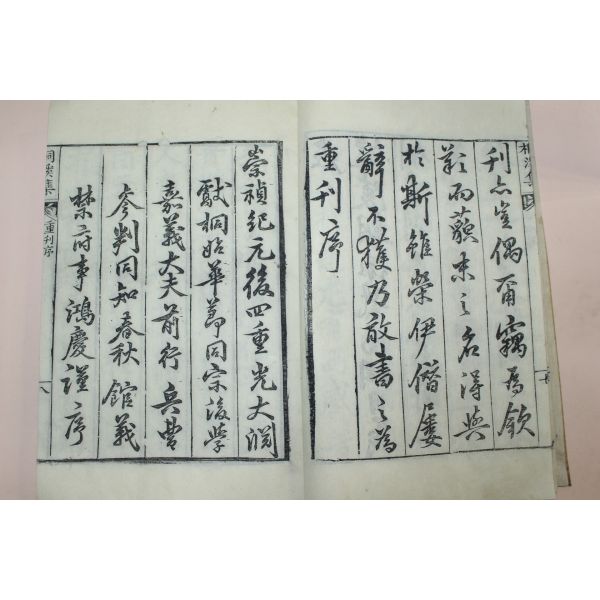 刊亦豈偶甭竊爲欽
歎而藐末之名得與
於斯雖榮伊僭屢
辭不獲乃敢書之爲
重刊序
崇禎紀元後四重光大淵
獻桐始華節同宗後學
嘉義大夫前行兵曹
參判同知春秋館義
禁府事鴻慶謹序
桐溪集
重刊序
八